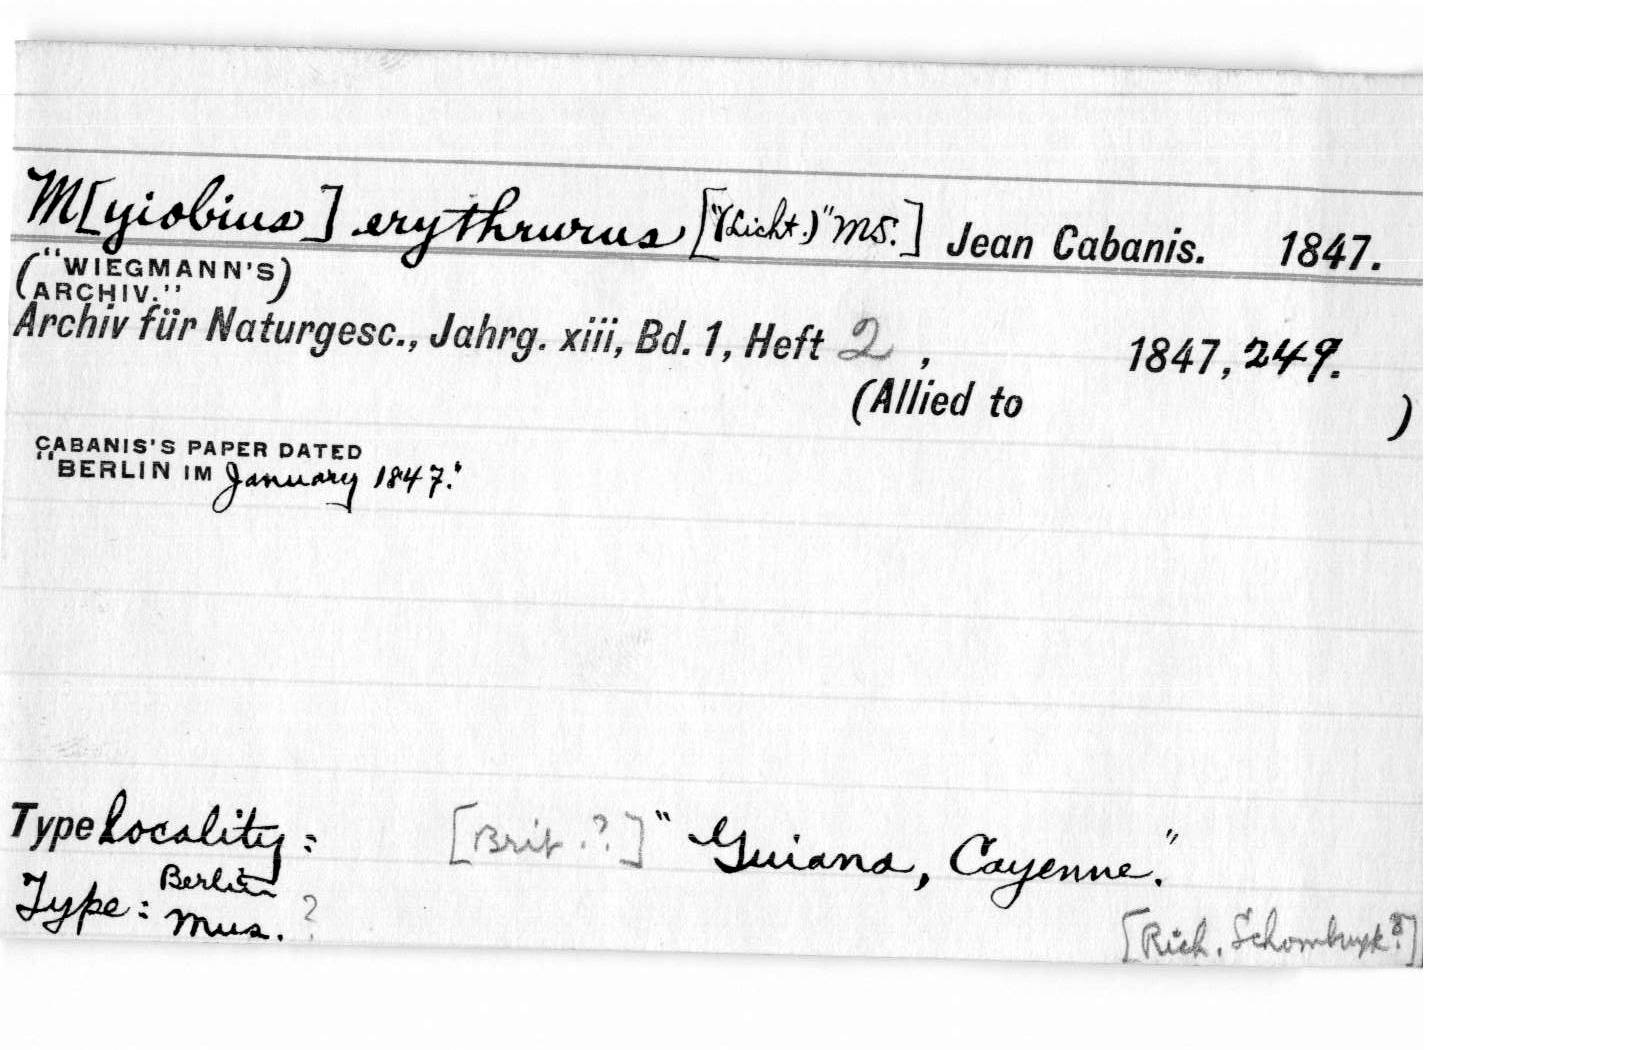 M[yiobius] erythrurus ["(Licht.)" MS.] Jean Cabanis. 1847.
("WIEGMANN'S)
(ARCHIV."
Archiv für Naturgesc., Jahrg. xiii, Bd. 1, Heft 2, 1847, 249.
(Allied to )
CABANIS'S PAPER DATED
"BERLIN IM January 1847."
Type Locality: [Brit.?] "Guiana, Cayenne."
Type: Berlin
Mus. ?
[Rich. Schomburgk?]